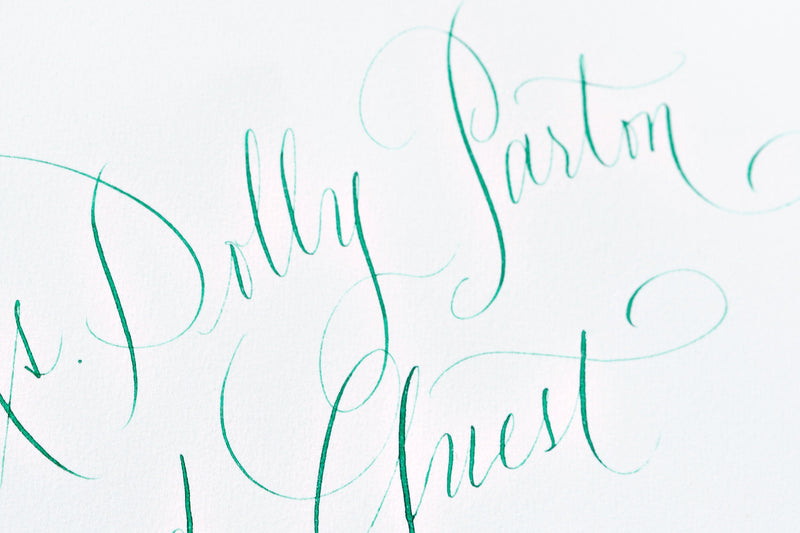 Ms. Dolly Parton
Guest